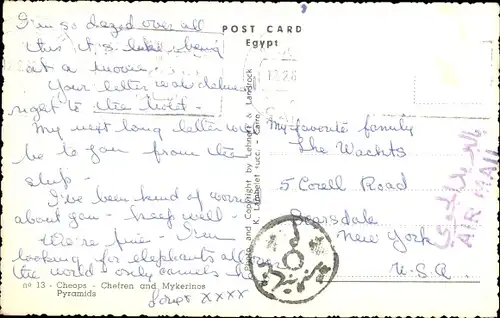 I'm so dazed over all
this it's like being
at a movie.
Your letter was delivered
right to the boat -
My next long letter will
be to you from the
ship -
I've been kind of worried
about you - keep well -
We're fine - I'm
looking for elephants all over
the world - only camels here
Love xxxx
nº 13 - Cheops - Chefren and Mykerinos
Pyramids
Photo and Copyright by Lehnert & Landrock
K. Lambelet succ. - Cairo
POST CARD
Egypt
My favorite family
The Wachts
5 Corell Road
Scarsdale
New York
U.S.A.
AIR MAIL